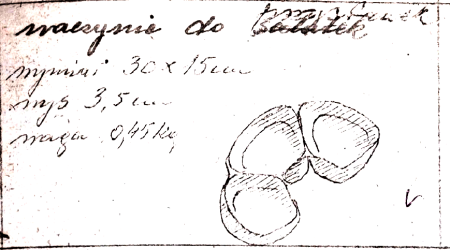 naczynie do sałatek
wymiary 30 x 15 cm
wys 3,5 cm
waga 0,45 kg